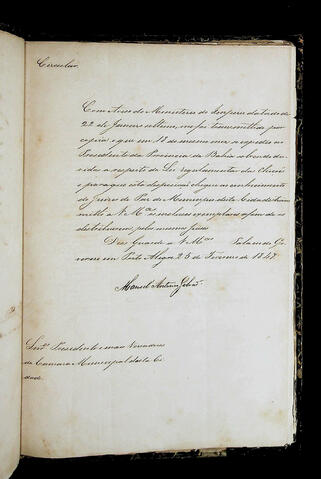 Circular.
Com Aviso do Ministerio do Imperio datado de
22 de Janeiro ultimo, me foi transmittido por
copia, o que em 18 do mesmo mez, se expedio ao
Presidente da Provincia da Bahia sobre du-
vidas a respeito da Lei regulamentar das
e para que esta disposição chegue ao conhecimento
do Juizes de Paz do Municipio desta Cidade trans-
mitto a V. M.ces inclusos exemplares afim de se
distribuirem pelos mesmos Juizes
Deos Guarde a V. M.ces Palacio do Go-
verno em Porto Alegre 25 de Fevereiro de 1847.
Manoel Antonio Galvão
Snr.es Presidente e mais Vereadores
da Camara Municipal desta Ci-
dade.